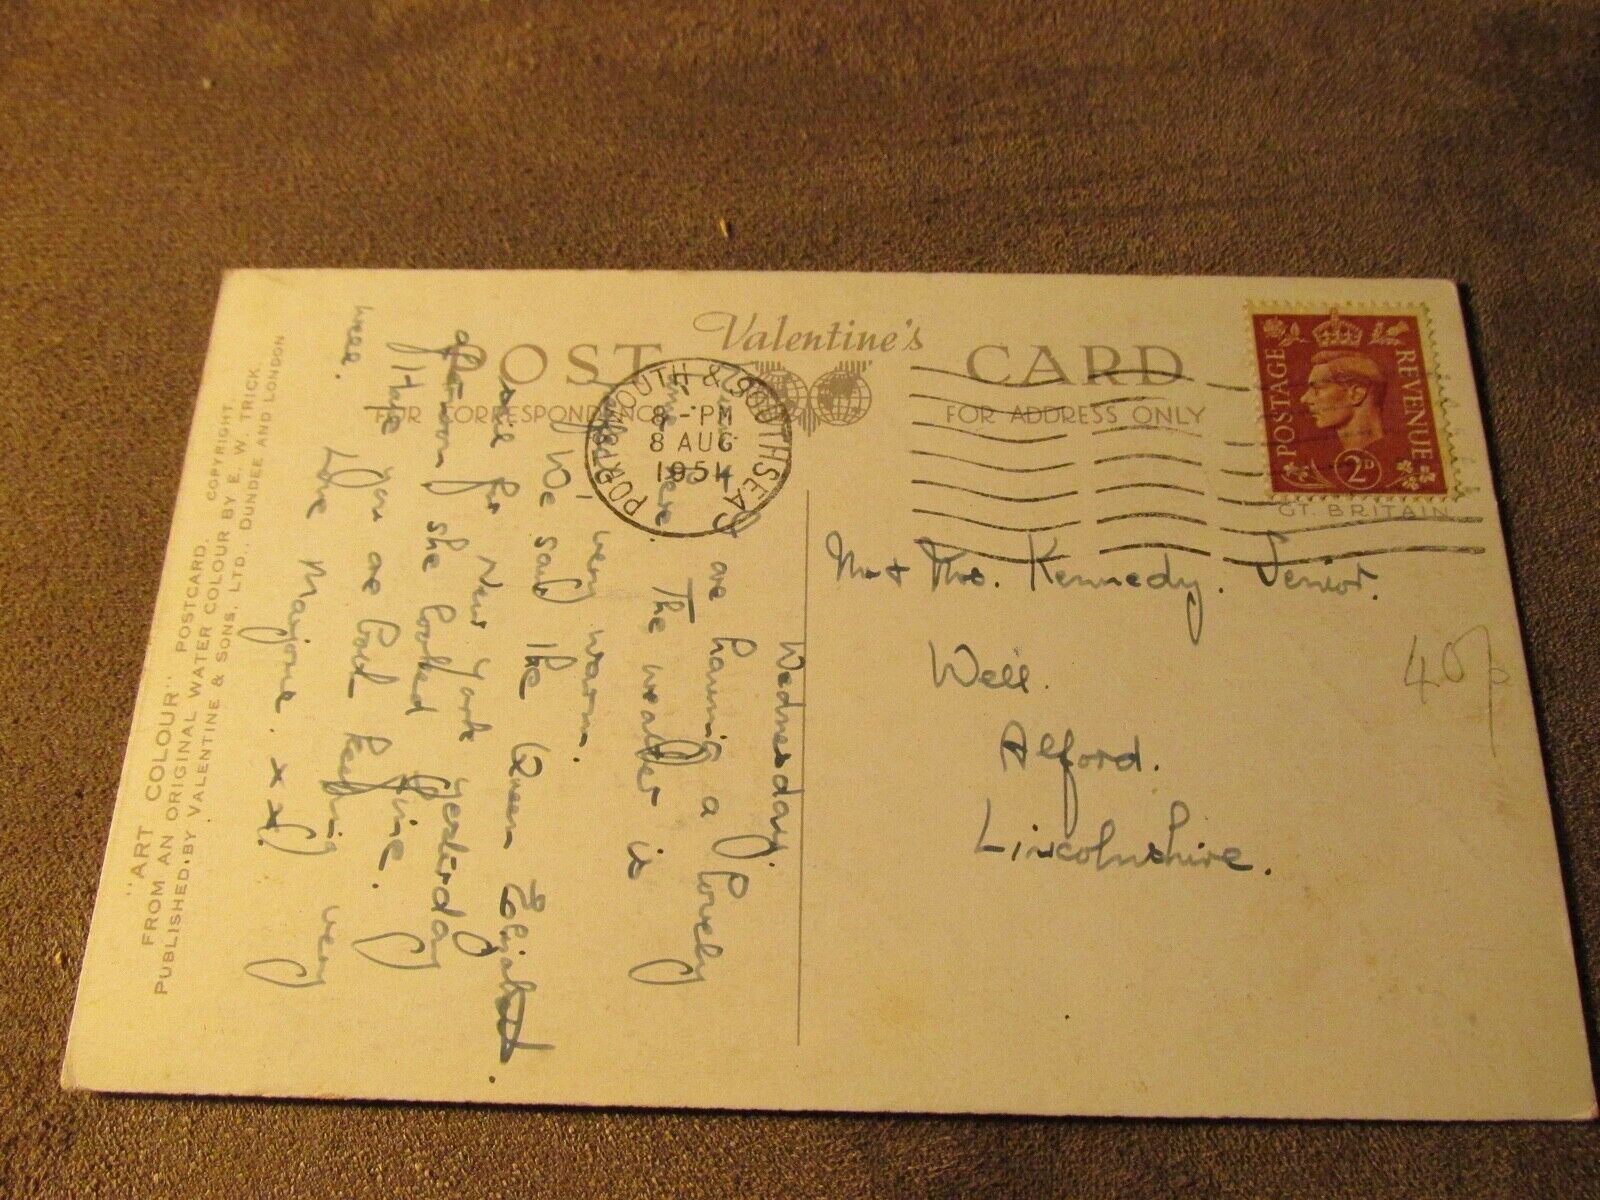 Valentine's
POST CARD
FOR CORRESPONDENCE
FOR ADDRESS ONLY
PORTSMOUTH & SOUTHSEA
8 - PM
8 AUG
1951
POSTAGE REVENUE
2D
GT. BRITAIN
Mr + Mrs. Kennedy. Senior.
Well.
Alford.
Lincolnshire.
40p
Wednesday.
are having a lovely
time here. The weather is
very warm.
We saw the Queen Elizabeth
sail for New York yesterday
afternoon she looked fine.
Hope you are both keeping very
well. Love Marjorie. x x
"ART COLOUR" POSTCARD.
FROM AN ORIGINAL WATER COLOUR BY E. W. TRICK
PUBLISHED BY VALENTINE & SONS, LTD., DUNDEE AND LONDON
COPYRIGHT